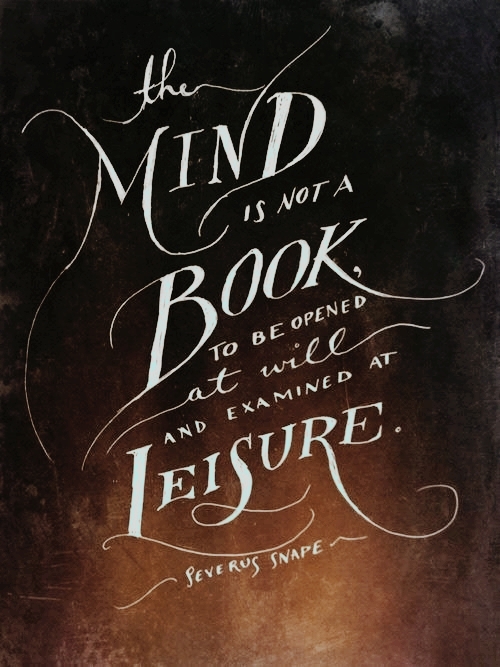 the
MIND
IS NOT A
BOOK,
TO BE OPENED
at will
AND EXAMINED AT
LEISURE.
SEVERUS SNAPE